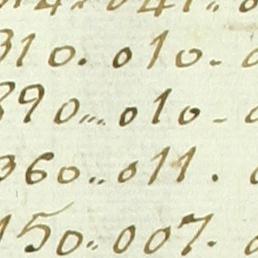 310. 010.
390... 010-
360.. 011.
150.. 007.